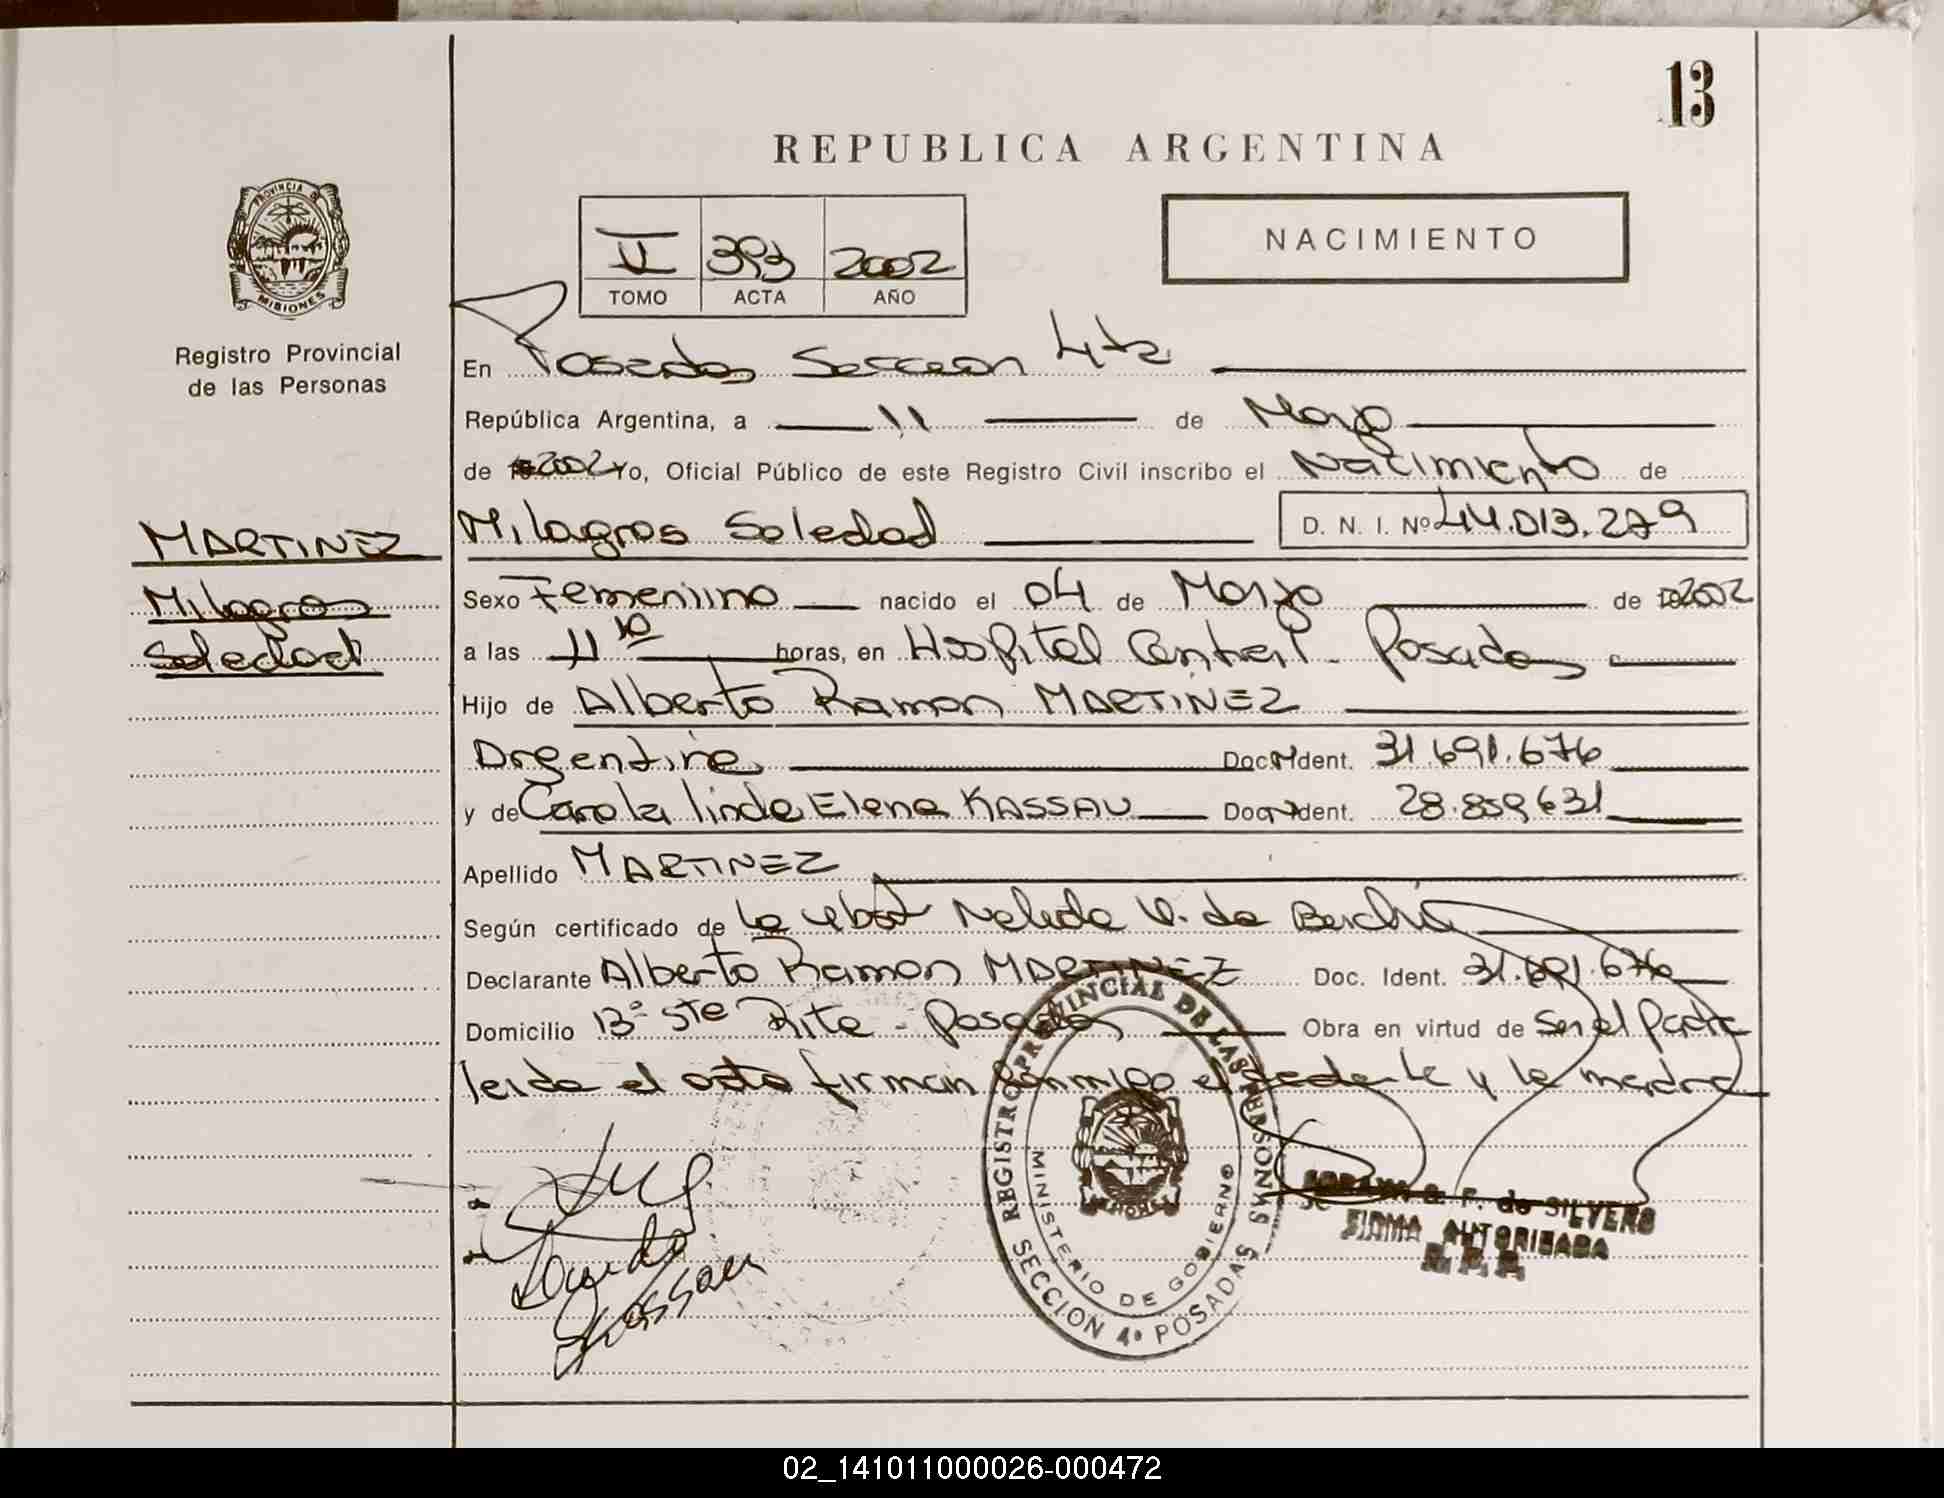 13
REPUBLICA ARGENTINA
PROVINCIA DE MISIONES
Registro Provincial
de las Personas
II 393 2002
TOMO ACTA AÑO
NACIMIENTO
En Posadas Seccion 4ta
República Argentina, a 11 de Marzo
de 2002 Yo, Oficial Público de este Registro Civil inscribo el Nacimiento de
MARTINEZ
Milagros
Soledad
Milagros Soledad D. N. I. Nº 44.013.279
Sexo Femenino nacido el 04 de Marzo de 2002
a las 11 10 horas, en Hospital Central - Posadas
Hijo de Alberto Ramon MARTINEZ
Argentina Doc. Ident. 31.691.676
y de Carola linda Elena KASSAU Doc. Ident. 28.859.631
Apellido MARTINEZ
Según certificado de la obst Nelida V. de
Declarante Alberto Ramon MARTINEZ Doc. Ident. 31.691.676
Domicilio Bº Sta Rita - Posadas Obra en virtud de Ser el Padre
leida el acta firman conmigo el y la madre
REGISTRO PROVINCIAL DE LAS PERSONAS
MINISTERIO DE GOBIERNO
SECCION 4ª POSADAS
G. F. de SILVERO
FIRMA AUTORIZADA
R. P. P.
Kassau
02_141011000026-000472